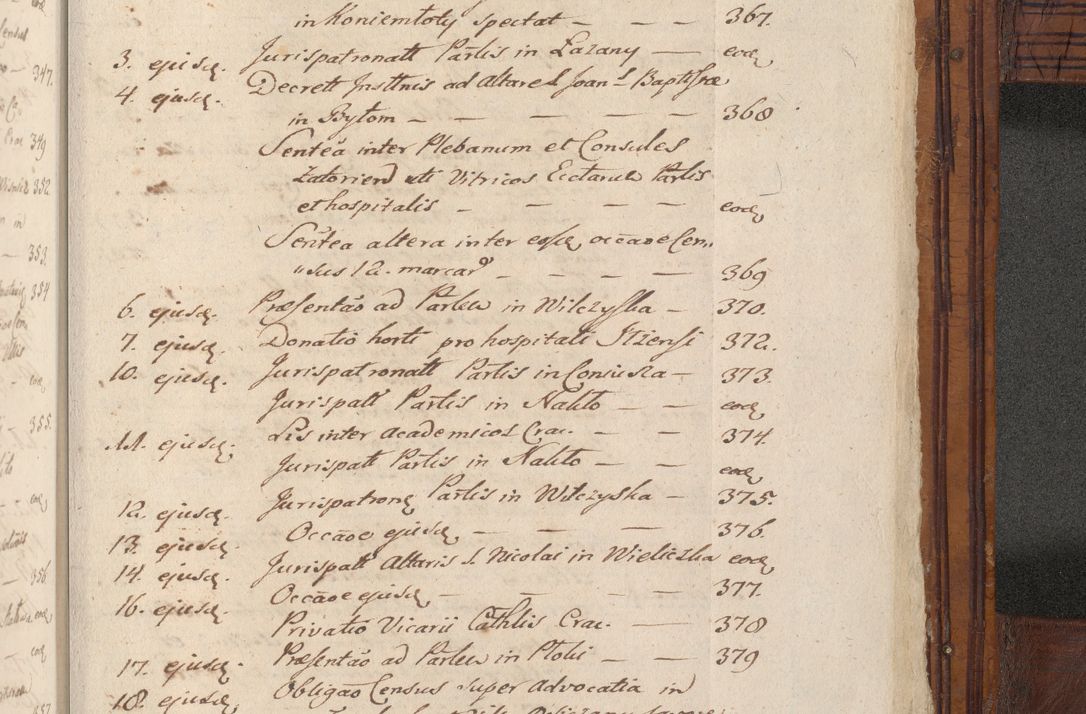 in Koniemłoty spectat — — — 367.
3. ejusq. Jurispatronatt Partis in Łazany — eoq
4. ejusq. Decrett Insttnis ad altare S. Joan. Baptistæ
in Bytom — — — — — 368
Sentēa inter Plebanum et Consules
Zatorien et Vitricos Ecctarum Partis
et hospitalis — — — — eoq
Sentēa altera inter eosq, occāoe Cen„
„sus 12. marcar — — — — 369
6. ejusq. Præsentāo ad Partem in Wilczyska — 370.
7. ejusq. Donatio horti pro hospitali Itzensi 372.
10. ejusq. Jurispatronatt Partis in Coniusza — 373.
Jurispatt Partis in Nakło — — eoq
11. ejusq. Lis inter academicos Crac. — — 374
Jurispatt Partis in Nakło — — eoq
12. ejusq. Jurispatronq Partis in Wilczyska — 375.
13. ejusq. Occāoe ejusq, — — — 376.
14. ejusq. Jurispatt Altaris S. Nicolai in Wieliczka eoq
16. ejusq. Occāoe ejusq, — — — — 377.
Privatio Vicarii Cathlis Crac. — 378
17. ejusq. Præsentāo ad Partem in Ptoki — — 379
18. ejusq. Obligāo Census super advocatia in